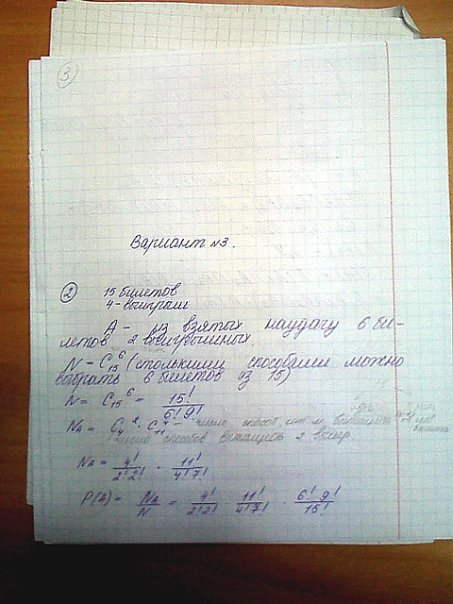 3
Вариант №3.
2 15 билетов
4 - выиграли
А - из взятых наудачу 6 би-
летов 2 выигрышных.
N - C₁₅⁶ (сколькими способами можно
выбрать 6 билетов из 15)
N = C₁₅⁶ = 15! / 6! 9!
Nₐ = C₄² · C₁₁⁴ - число способ
число способов вытащить 2 выигр.
Nₐ = 4! / 2! 2! · 11! / 4! 7!
P(A) = Nₐ / N = 4! / 2! 2! · 11! / 4! 7! · 6! 9! / 15!